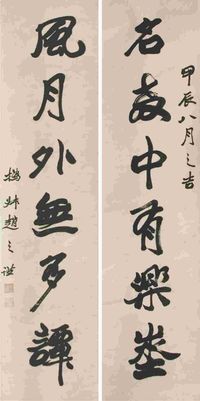 甲辰八月之吉
名教中有樂埊
風月外無多譚
撝叔趙之謙